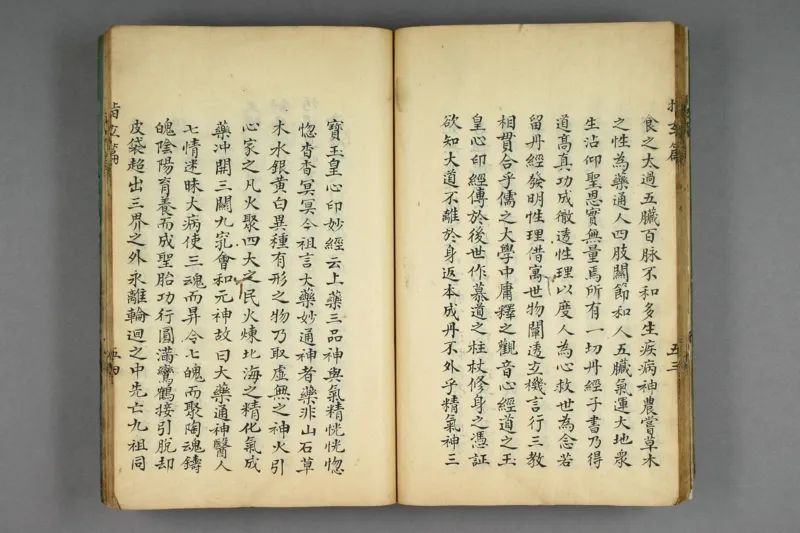 食之太過五臟百脉不和多生疾病神農嘗草木
之性為藥通人四肢關節和人五臟氣運大地眾
生沾仰聖恩實無量焉所有一切丹經子書乃得
道高真功成徹透性理以度人為心救世為念若
留丹經發明性理借寓世物闡透玄機言行三教
相貫合乎儒之大學中庸釋之觀音心經道之玉
皇心印經傳於後世作慕道之柱杖修身之憑証
欲知大道不離於身返本成丹不外乎精氣神三
五三
寶玉皇心印妙經云上藥三品神與氣精恍恍惚
惚杳杳冥冥今祖言大藥妙通神者藥非山石草
木水銀黃白異種有形之物乃取虛無之神火引
心家之凡火聚四大之民火煉北海之精化氣成
藥冲開三關九竅會和元神故曰大藥通神醫人
七情迷昧大病使三魂而昇令七魄而聚陶魂鑄
魄陰陽育養而成聖胎功行圓滿鸞鶴接引脫却
皮袋超出三界之外永離輪迴之中先亡九祖同
指玄篇
五四